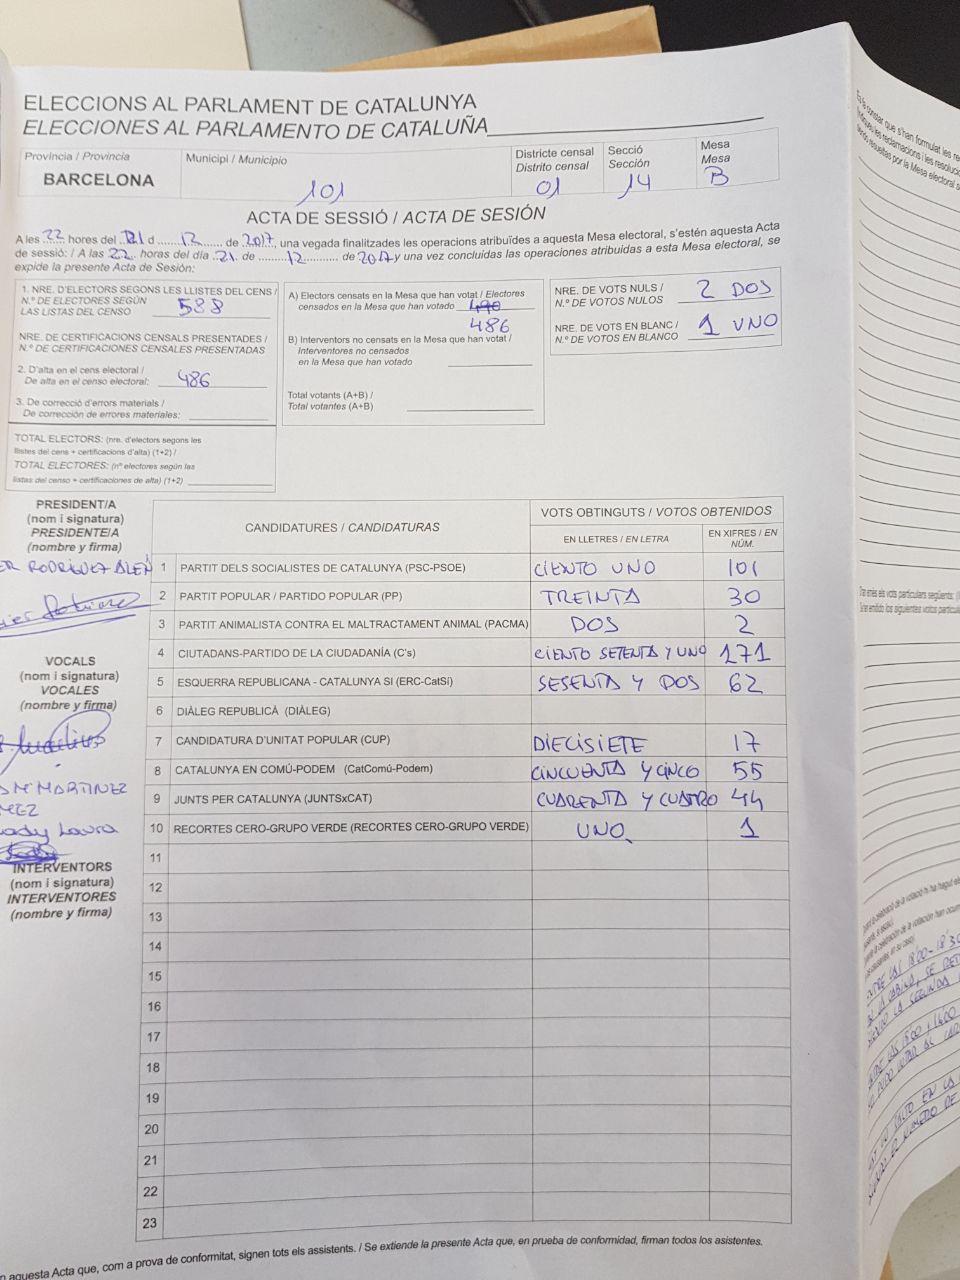 ELECCIONS AL PARLAMENT DE CATALUNYA
ELECCIONES AL PARLAMENTO DE CATALUÑA
Província / Provincia
BARCELONA
Municipi / Municipio
101
Districte censal
Distrito censal
01
Secció
Sección
14
Mesa
Mesa
B
ACTA DE SESSIÓ / ACTA DE SESIÓN
A les 22 hores del 21 d 12 de 2017, una vegada finalitzades les operacions atribuïdes a aquesta Mesa electoral, s'estén aquesta Acta
de sessió: / A las 22 horas del día 21 de 12 de 2017 y una vez concluidas las operaciones atribuidas a esta Mesa electoral, se
expide la presente Acta de Sesión:
1. NRE. D'ELECTORS SEGONS LES LLISTES DEL CENS /
N.º DE ELECTORES SEGÚN
LAS LISTAS DEL CENSO 588
NRE. DE CERTIFICACIONS CENSALS PRESENTADES /
N.º DE CERTIFICACIONES CENSALES PRESENTADAS
2. D'alta en el cens electoral /
De alta en el censo electoral: 486
3. De correcció d'errors materials /
De corrección de errores materiales:
TOTAL ELECTORS: (nre. d'electors segons les
llistes del cens + certificacions d'alta) (1+2) /
TOTAL ELECTORES: (nº electores según las
listas del censo + certificaciones de alta) (1+2)
A) Electors censats en la Mesa que han votat / Electores
censados en la Mesa que han votado 490
486
B) Interventors no censats en la Mesa que han votat /
Interventores no censados
en la Mesa que han votado
Total votants (A+B) /
Total votantes (A+B)
NRE. DE VOTS NULS /
N.º DE VOTOS NULOS 2 DOS
NRE. DE VOTS EN BLANC /
N.º DE VOTOS EN BLANCO 1 UNO
PRESIDENT/A
(nom i signatura)
PRESIDENTE/A
(nombre y firma)
RODRIGUEZ
VOCALS
(nom i signatura)
VOCALES
(nombre y firma)
Mª MARTINEZ
Laura
INTERVENTORS
(nom i signatura)
INTERVENTORES
(nombre y firma)
CANDIDATURES / CANDIDATURAS
VOTS OBTINGUTS / VOTOS OBTENIDOS
EN LLETRES / EN LETRA
EN XIFRES / EN
NÚM.
1 PARTIT DELS SOCIALISTES DE CATALUNYA (PSC-PSOE) CIENTO UNO 101
2 PARTIT POPULAR / PARTIDO POPULAR (PP) TREINTA 30
3 PARTIT ANIMALISTA CONTRA EL MALTRACTAMENT ANIMAL (PACMA) DOS 2
4 CIUTADANS-PARTIDO DE LA CIUDADANÍA (C's) CIENTO SETENTA Y UNO 171
5 ESQUERRA REPUBLICANA - CATALUNYA SI (ERC-CatSí) SESENTA Y DOS 62
6 DIÀLEG REPUBLICÀ (DIÀLEG)
7 CANDIDATURA D'UNITAT POPULAR (CUP) DIECISIETE 17
8 CATALUNYA EN COMÚ-PODEM (CatComú-Podem) CINCUENTA Y CINCO 55
9 JUNTS PER CATALUNYA (JUNTSxCAT) CUARENTA Y CUATRO 44
10 RECORTES CERO-GRUPO VERDE (RECORTES CERO-GRUPO VERDE) UNO 1
11
12
13
14
15
16
17
18
19
20
21
22
23
aquesta Acta que, com a prova de conformitat, signen tots els assistents. / Se extiende la presente Acta que, en prueba de conformidad, firman todos los asistentes.